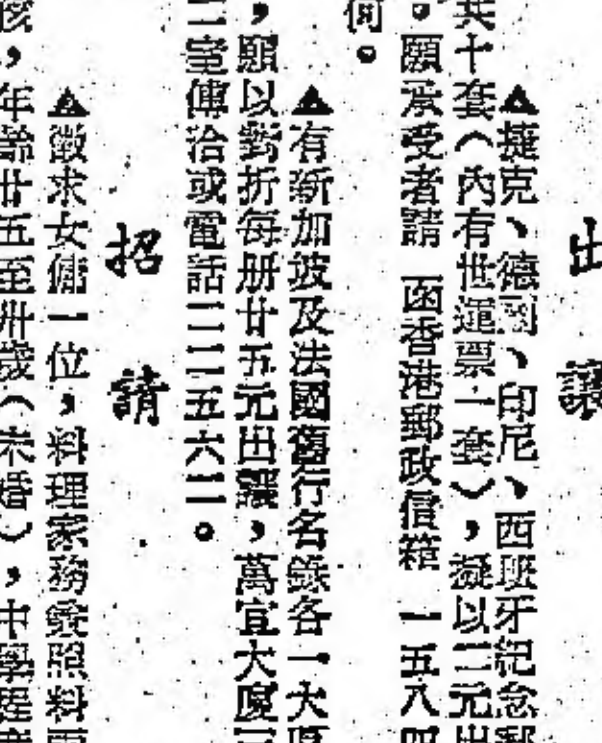 出讓
▲捷克、德國、印尼、西班牙紀念郵
共十套（內有世運票一套），擬以二元出
。願承受者請 函香港郵政信箱 一五八四
何。
▲有新加坡及法國舊行名錄各一大厚
，願以對折每册廿五元出讓，萬宜大廈三
二室傅洽或電話二二五六二。
招請
▲徵求女傭一位，料理家務兼照料
孩，年齡廿五至卅歲（未婚），中學程度